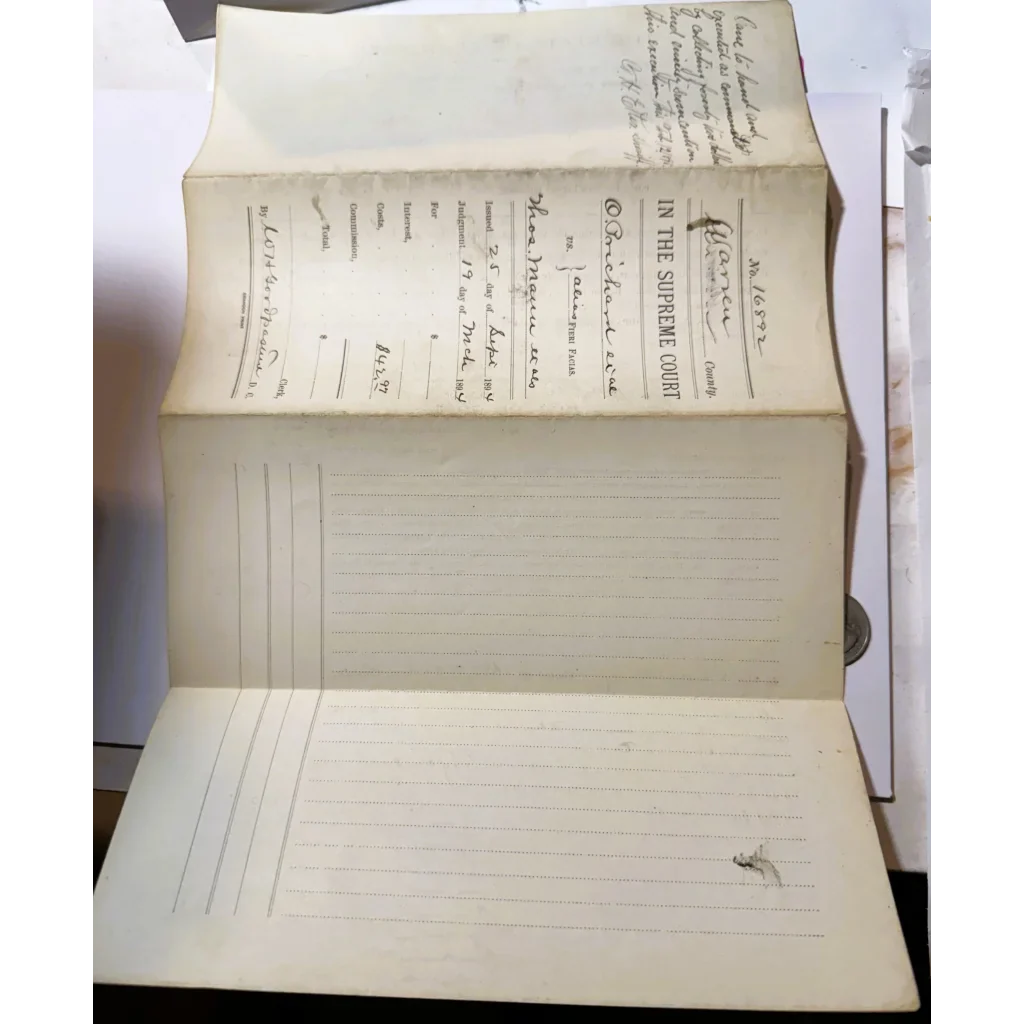 Came to hand and
executed as commanded
by collecting
and
this execution
No. 16892
Warren County.
IN THE SUPREME COURT
O. Prichard et al
vs. } alias FIERI FACIAS.
Thos. et als
Issued 25 day of Sept 1894
Judgment 19 day of Mch 1894
For $
Interest,
Costs, 842.97
Commission,
Total, $
Clerk,
By D. C.